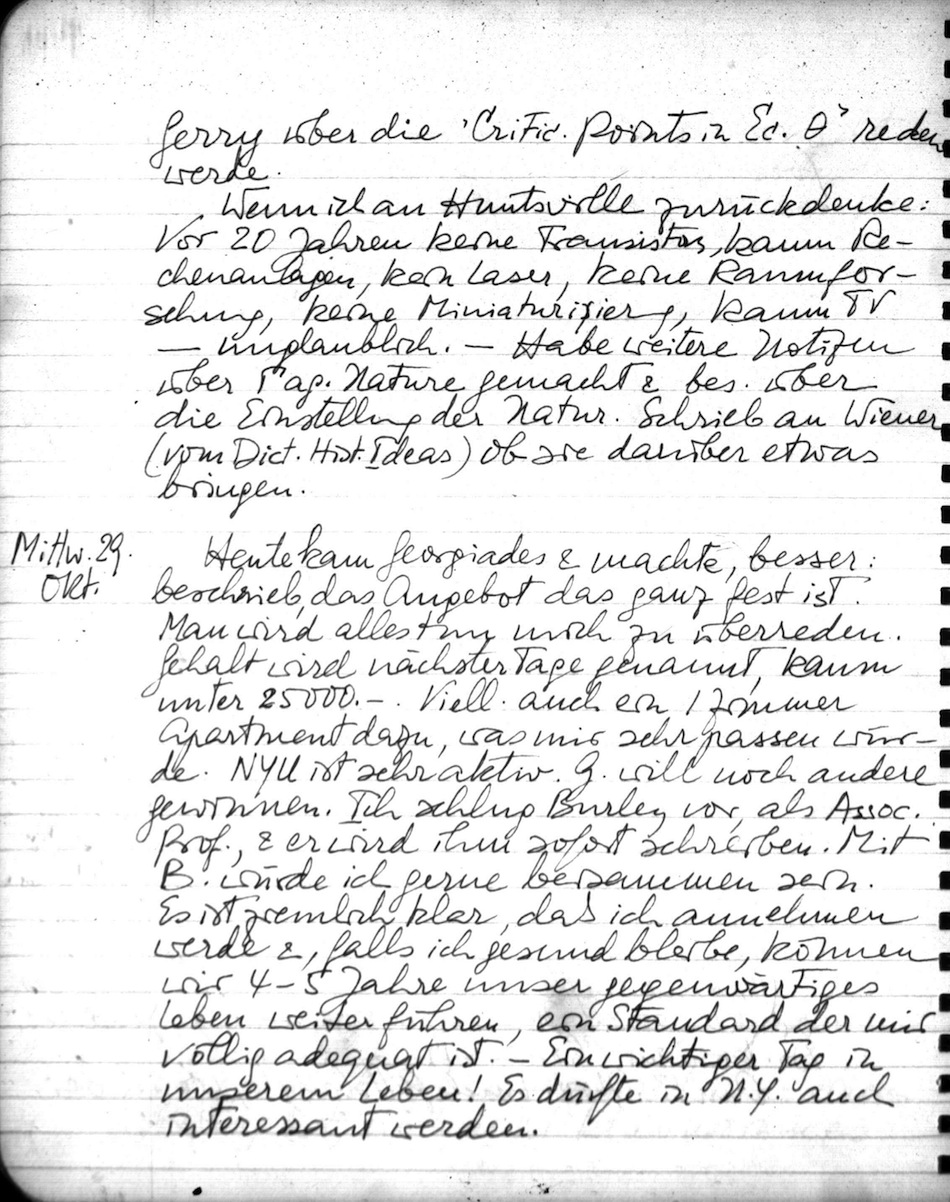 Gerry über die 'Critic. Points in Ec. θ' reden
werde.
Wenn ich an Huntsville zurückdenke:
Vor 20 Jahren keine Transistors, kaum Re-
chenanlagen, kein Laser, keine Raumfor-
schung, keine Miniaturizierg, kaum TV
— unglaublich. — Habe weitere Notizen
über ag. Nature gemacht & bes. über
die Einstellung der Natur. Schrieb an Wiener
(vom Dict. Hist. Ideas) ob sie darüber etwas
bringen.
Mittw. 29.
Okt.
Heute kam Georgiades & machte, besser:
beschrieb, das Angebot das ganz fest ist.
Man wird alles tun mich zu überreden.
Gehalt wird nächster Tage genannt, kaum
unter 25000.-. Viell. auch ein 1 Zimmer
Apartment dazu, was mir sehr passen wür-
de. NYU ist sehr aktiv. G. will noch andere
gewinnen. Ich schlug Burley vor, als Assoc.
Prof., & er wird ihm sofort schreiben. Mit
B. würde ich gerne beisammen sein.
Es ist ziemlich klar, daß ich annehmen
werde &, falls ich gesund bleibe, können
wir 4-5 Jahre unser gegenwärtiges
Leben weiter führen, ein Standard der mir
völlig adequat ist. — Ein wichtiger Tag in
unserem Leben! Es dürfte in N.Y. auch
interessant werden.